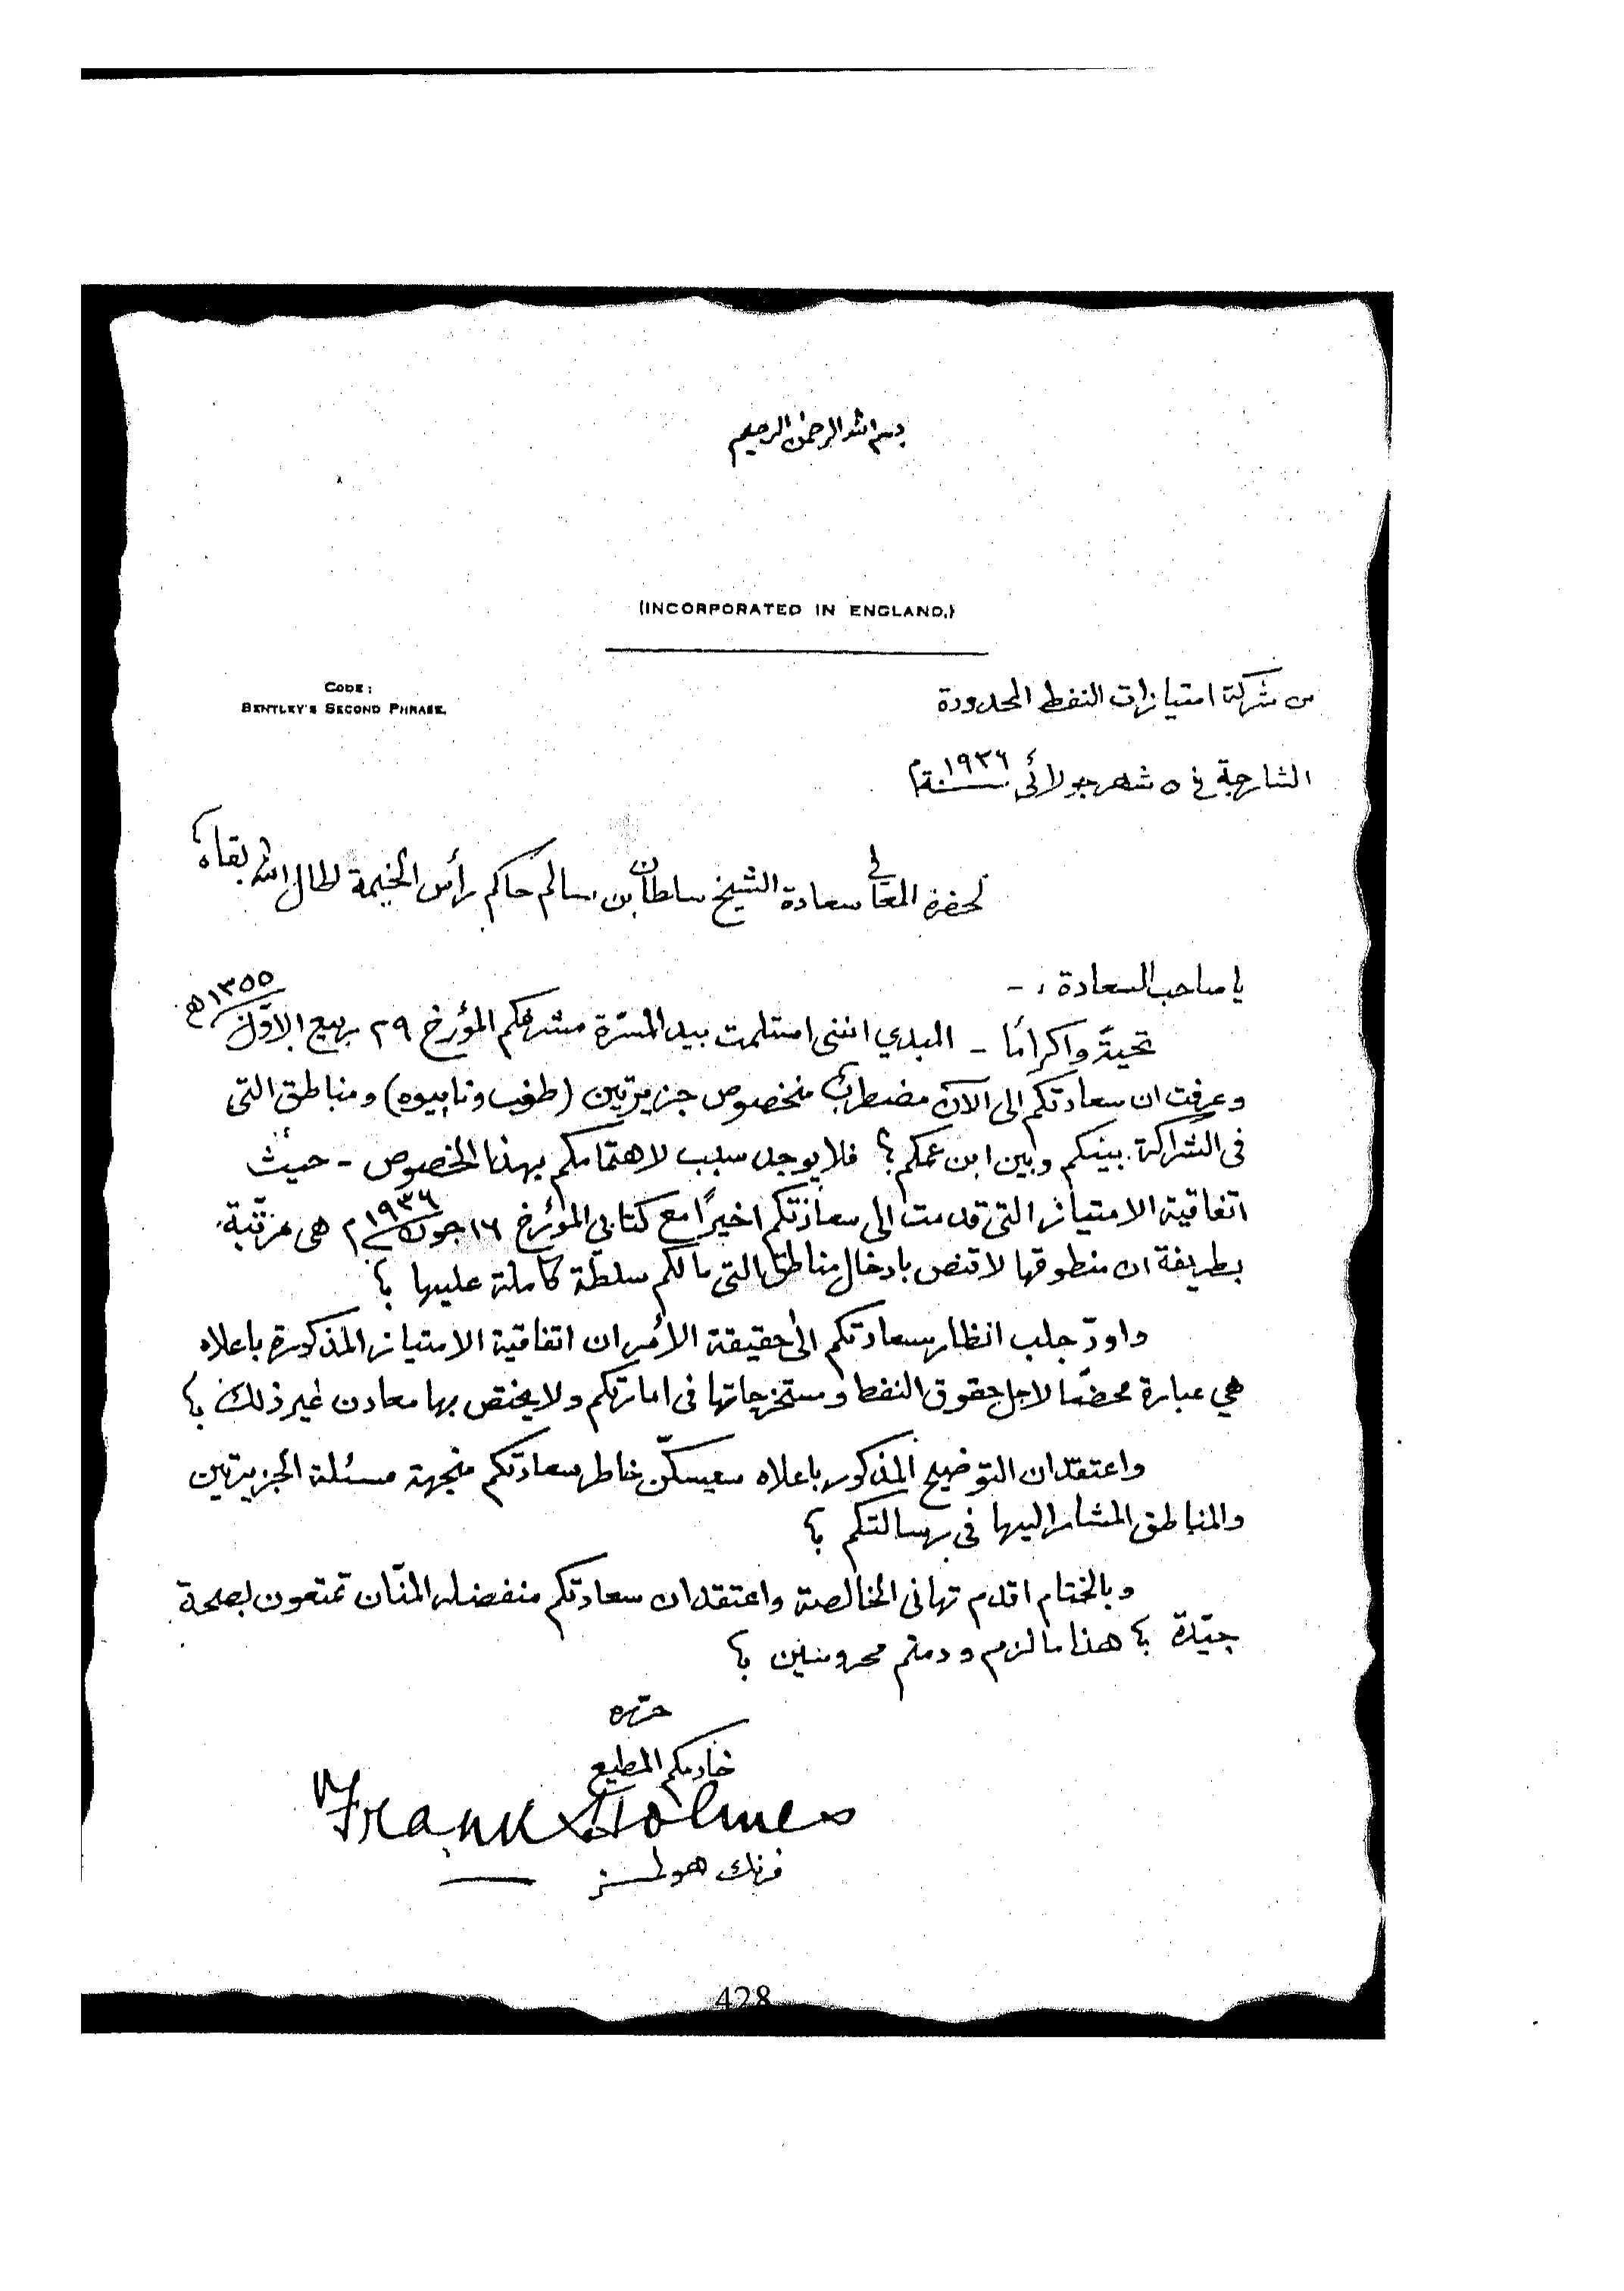 بسم الله الرحمن الرحيم
(INCORPORATED IN ENGLAND.)
CODE:
BENTLEY'S SECOND PHRASE.
من شركة امتيازات النفط المحدودة
الشارجة في ٥ شهر جولائى سنة ١٩٣٦م
لحضرة المعالي سعادة الشيخ سلطان بن سالم حاكم رأس الخيمة اطال الله بقاه
يا صاحب السعادة ، -
تحيةً واكرامًا - المبدي انني استلمت بيد المسرّة مشرفكم المؤرخ ٢٩ ربيع الاوّل ١٣٥٥ هـ
وعرفت ان سعادتكم الى الآن مضطرب منخصوص جزيرتين (طنب ونابيوه) ومناطق التى
فى الشراكة بينكم وبين ابن عمكم ؟ فلا يوجد سبب لاهتمامكم بهذا الخصوص - حيث
اتفاقية الامتياز التى قدمت الى سعادتكم اخيرًا مع كتابي المؤرخ ١٦ جون ١٩٣٦م هى مرتّبة
بطريقة ان منطوقها لا تنص بادخال مناطق التى مالكم سلطة كاملة عليها ؟
واودّ جلب انظار سعادتكم الى حقيقة الأمر ان اتفاقية الامتياز المذكورة باعلاه
هي عبارة محضًا لاجل حقوق النفط ومستخرجاتها فى امارتكم ولا يختص بها معادن غير ذلك ؟
واعتقد ان التوضيح المذكور باعلاه سيسكّن خاطر سعادتكم منجهة مسئلة الجزيرتين
والمناطق المشار اليها فى رسالتكم ؟
وبالختام اقدم تهانى الخالصة واعتقد ان سعادتكم منفضله المنّان تمتعون بصحة
جيّدة ؟ هذا ما لزم ودمتم محروسين ؟
حرّره
خادمكم المطيع
Frank Holmes
فرنك هولمز
428